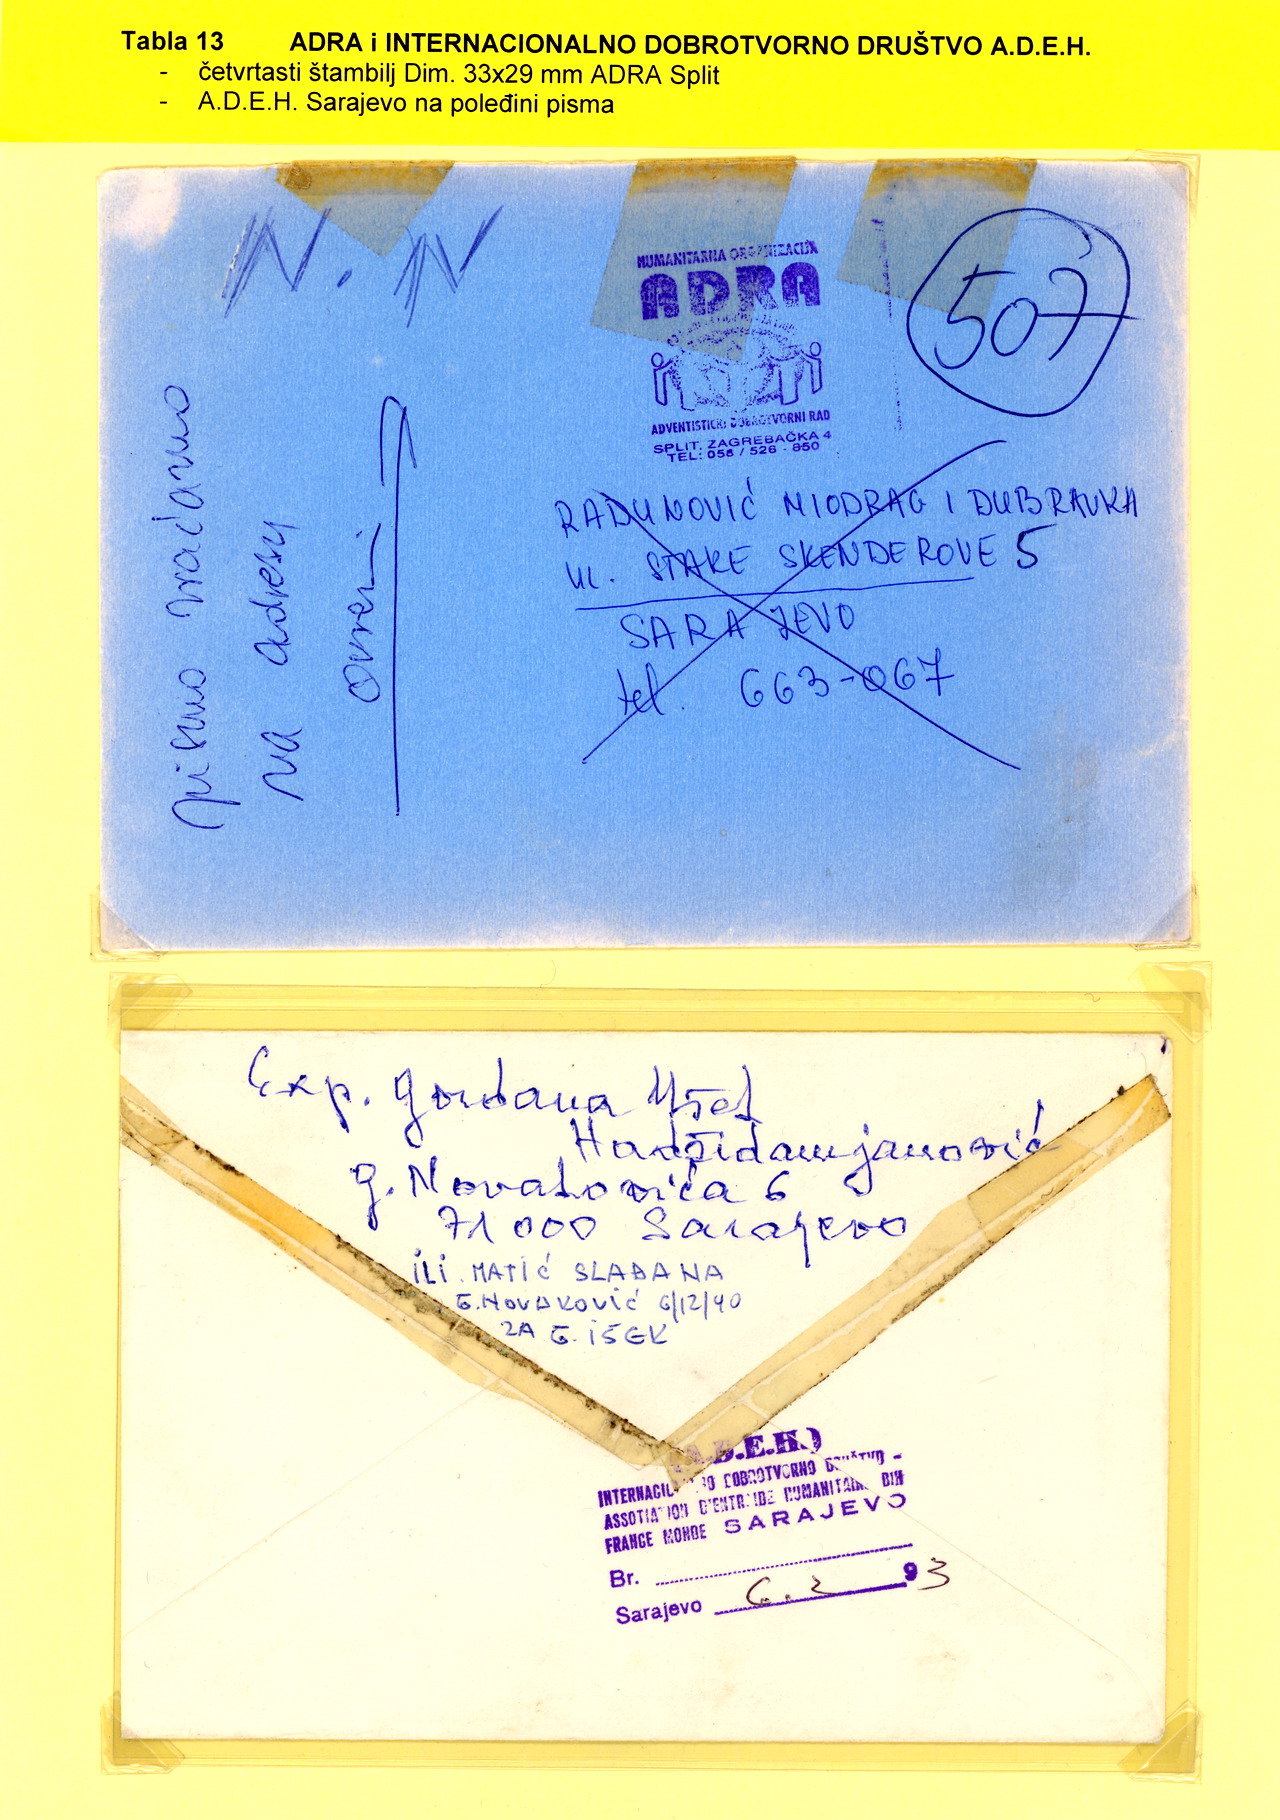 Tabla 13 ADRA i INTERNACIONALNO DOBROTVORNO DRUŠTVO A.D.E.H.
- četvrtasti štambilj Dim. 33x29 mm ADRA Split
- A.D.E.H. Sarajevo na poleđini pisma
N. N
HUMANITARNA ORGANIZACIJA
ADRA
ADVENTISTIČKI DOBROTVORNI RAD
SPLIT, ZAGREBAČKA 4
TEL: 058 / 526 - 850
507
pismo vraćamo
na adresu
RADUNOVIĆ MIODRAG I DUBRAVKA
ul. STAKE SKENDEROVE 5
SARAJEVO
tel. 663-067
Exp. Gordana Išek
Hadžidamjanović
G. Novakovića 6
71000 Sarajevo
ILI. MATIĆ SLAĐANA
G. NOVAKOVIĆ 6/12/40
ZA G. IŠEK
(A.D.E.H.)
INTERNACIONALNO DOBROTVORNO DRUŠTVO -
ASSOTIATION D'ENTRAIDE HUMANITAIRE BIH
FRANCE MONDE SARAJEVO
Br.
Sarajevo 6. 2 93